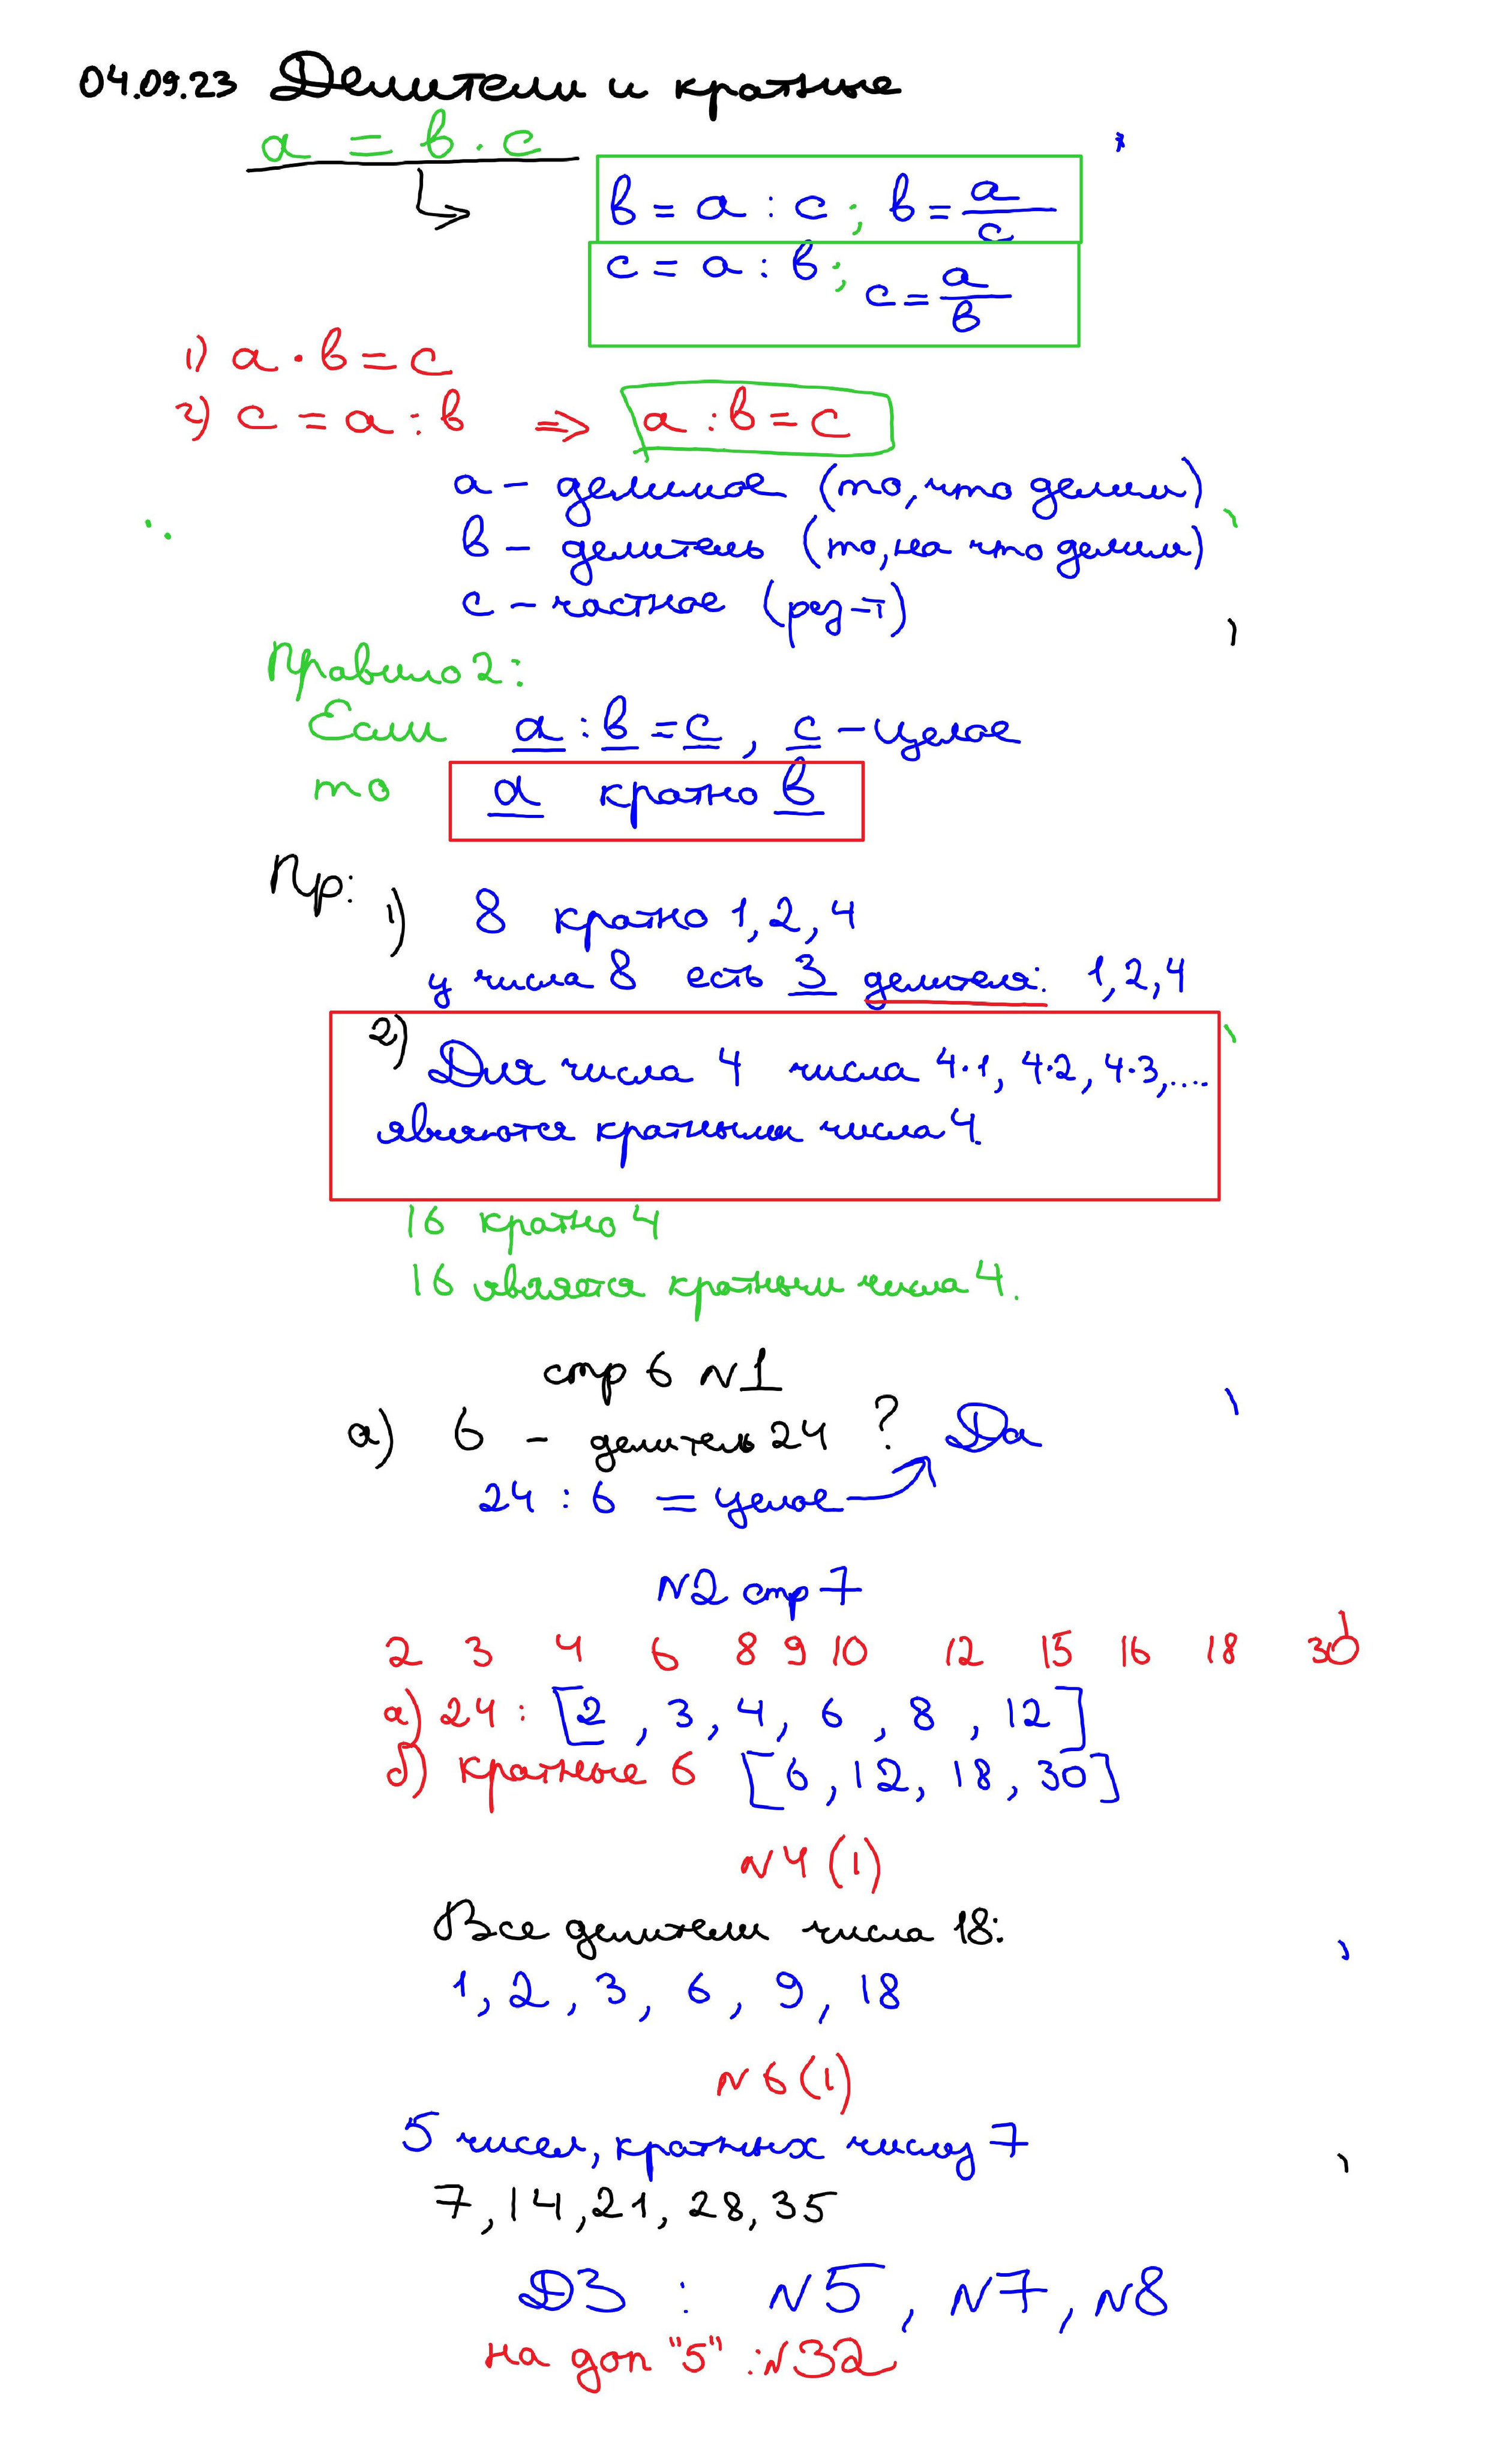 04.09.23 Делители и кратные
a = b · c
b = a : c ; b = a/c
c = a : b ; c = a/b
1) a · b = c
2) c = a : b ⇒ a : b = c
a – делимое (то, что делим)
b – делитель (то, на что делим)
c – частное (рез-т)
Правило 2:
Если a : b = c , c – целое
то a кратно b
Пр:
1) 8 кратно 1, 2, 4
у числа 8 есть 3 делителя: 1, 2, 4
2) Для числа 4 числа 4·1, 4·2, 4·3, ....
являются кратными числа 4.
16 кратно 4
16 является кратным числа 4.
стр 6 N1
а) 6 – делитель 24 ? Да
24 : 6 = целое
N2 стр 7
2 3 4 6 8 9 10 12 15 16 18 30
а) 24 : [2 , 3 , 4 , 6 , 8 , 12]
б) кратные 6 [6 , 12 , 18 , 30]
N4 (1)
Все делители числа 18:
1 , 2 , 3 , 6 , 9 , 18
N6 (1)
5 чисел, кратных числу 7
7, 14, 21, 28, 35
ДЗ : N5 , N7 , N8
на доп "5" : N32